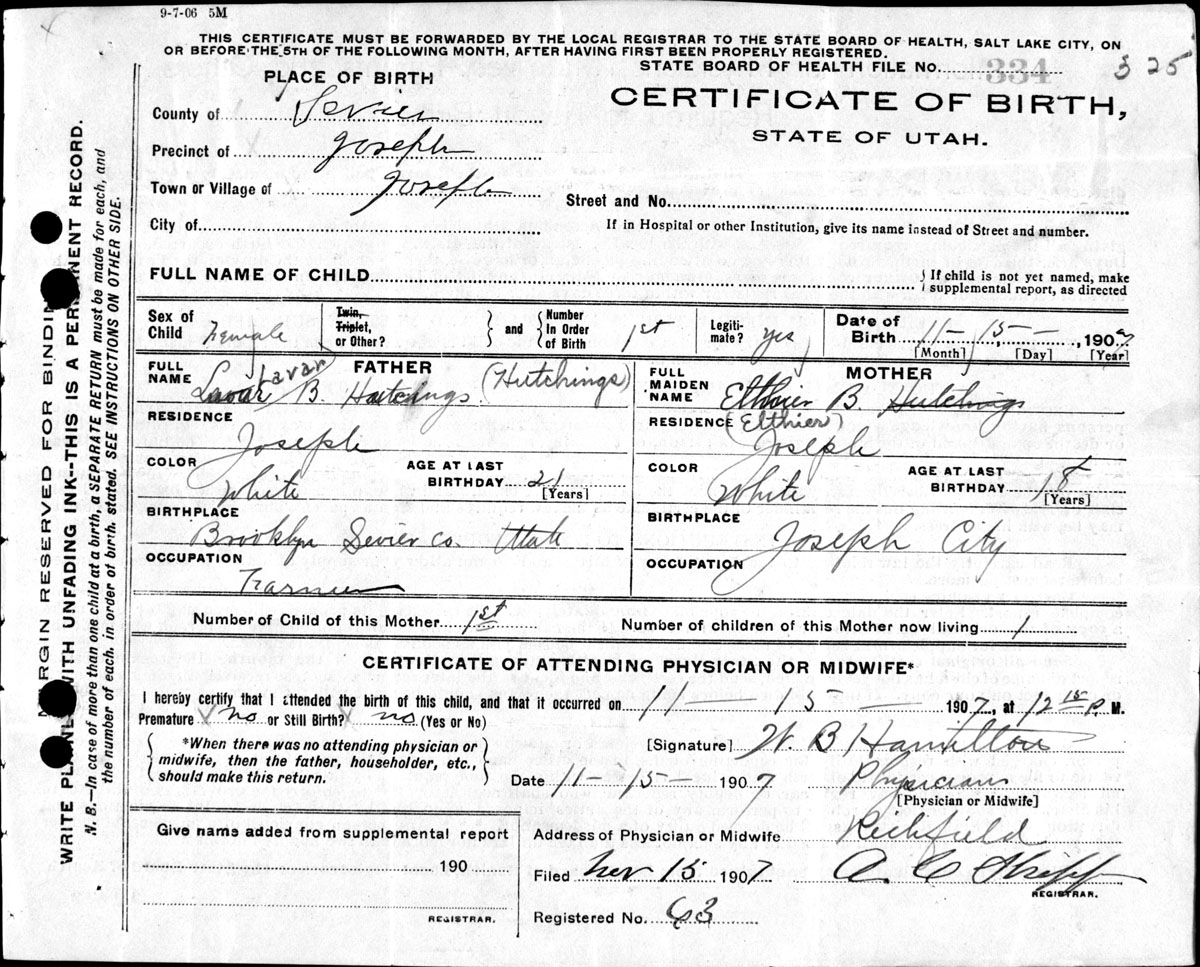 9-7-06 5M
THIS CERTIFICATE MUST BE FORWARDED BY THE LOCAL REGISTRAR TO THE STATE BOARD OF HEALTH, SALT LAKE CITY, ON
OR BEFORE THE 5TH OF THE FOLLOWING MONTH, AFTER HAVING FIRST BEEN PROPERLY REGISTERED.
STATE BOARD OF HEALTH FILE NO. 334 325
PLACE OF BIRTH
CERTIFICATE OF BIRTH,
STATE OF UTAH.
County of Sevier
Precinct of Joseph
Town or Village of Joseph
Street and No.
City of
If in Hospital or other Institution, give its name instead of Street and number.
FULL NAME OF CHILD
{ If child is not yet named, make
supplemental report, as directed
Sex of Child Female
Twin, Triplet, or Other?
} and { Number In Order of Birth 1st
Legiti-mate? Yes
Date of Birth 11 - 15 - 1907
[Month] [Day] [Year]
FATHER
FULL NAME Lavar B. Hutchings (Hutchings)
Lavar
MOTHER
FULL MAIDEN NAME Elthier B. Hutchings
(Elthier)
RESIDENCE Joseph
RESIDENCE Joseph
COLOR White
AGE AT LAST BIRTHDAY 21 [Years]
COLOR White
AGE AT LAST BIRTHDAY 18 [Years]
BIRTHPLACE Brooklyn Sevier Co. Utah
BIRTHPLACE Joseph City
OCCUPATION Farmer
OCCUPATION
Number of Child of this Mother 1st
Number of children of this Mother now living 1
CERTIFICATE OF ATTENDING PHYSICIAN OR MIDWIFE*
I hereby certify that I attended the birth of this child, and that it occurred on 11 - 15 - 1907, at 12 15 P. M.
Premature no or Still Birth? no (Yes or No)
{ *When there was no attending physician or
midwife, then the father, householder, etc.,
should make this return. }
[Signature] W. B Hamilton
Date 11 - 15 1907 Physician
[Physician or Midwife]
Give name added from supplemental report
190
REGISTRAR.
Address of Physician or Midwife Richfield
Filed Nov 15 1907
REGISTRAR.
Registered No. 63
MARGIN RESERVED FOR BINDING
WRITE PLAINLY WITH UNFADING INK--THIS IS A PERMANENT RECORD.
N. B.—In case of more than one child at a birth, a SEPARATE RETURN must be made for each, and
the number of each, in order of birth, stated. SEE INSTRUCTIONS ON OTHER SIDE.